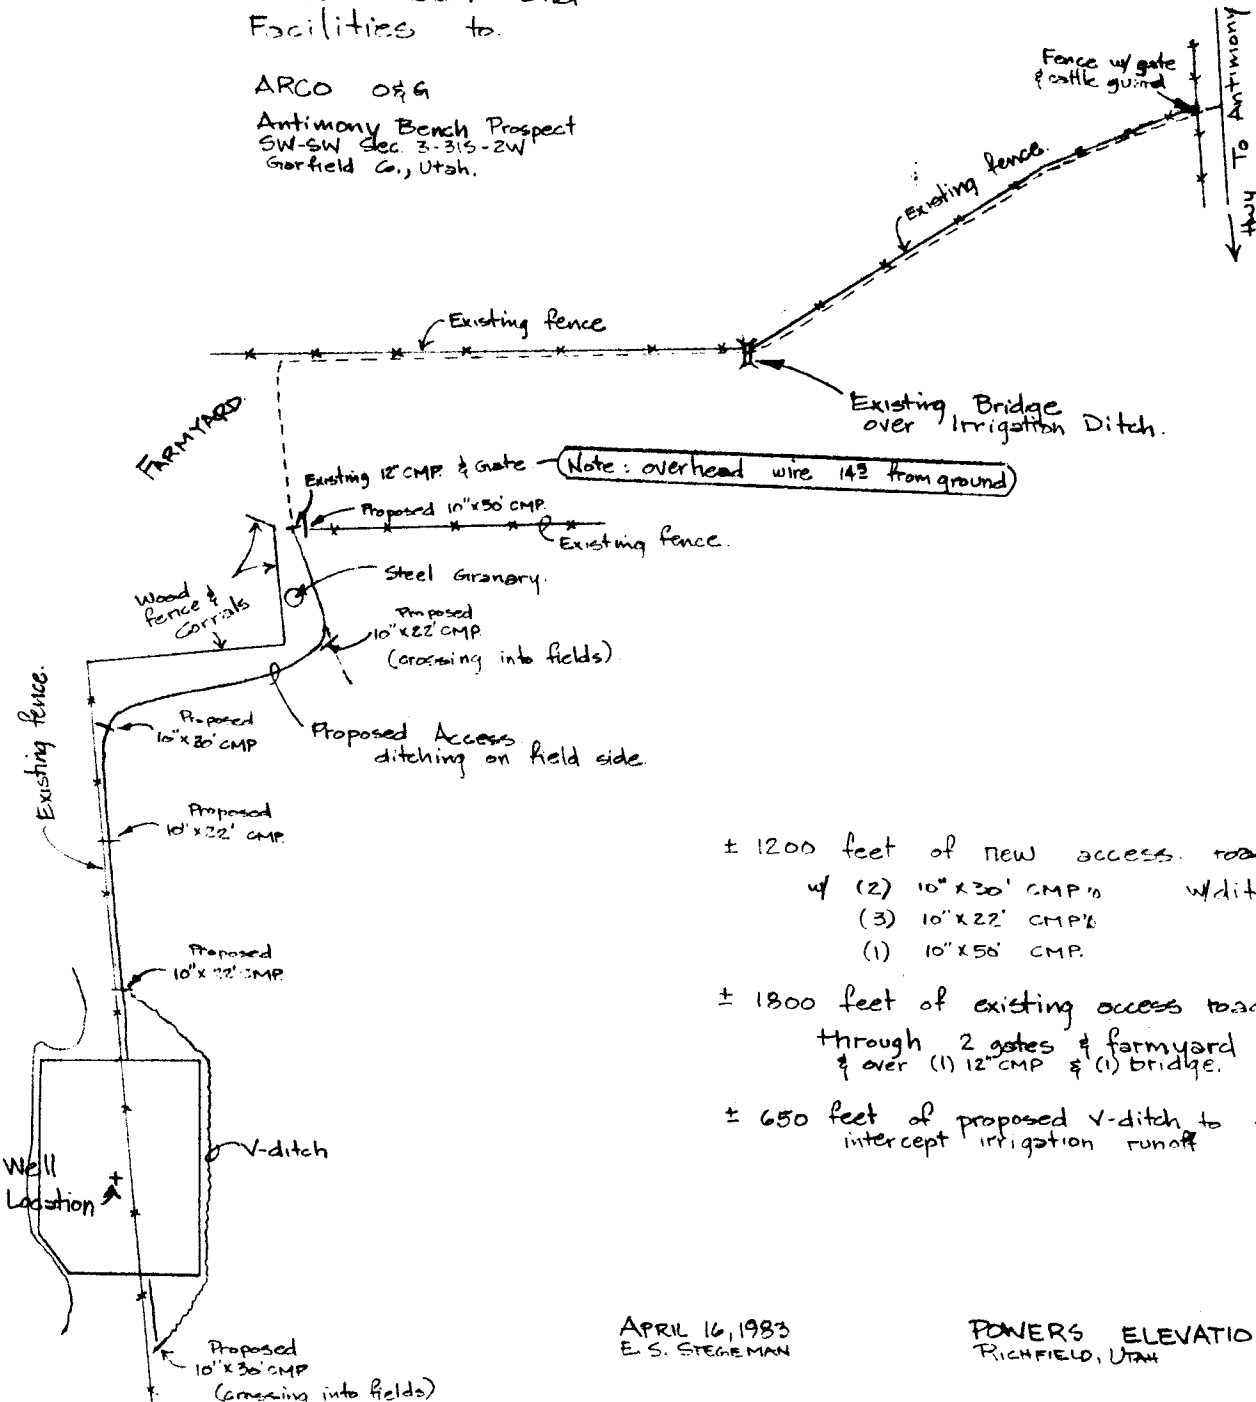 Facilities to.
ARCO O&G
Antimony Bench Prospect
SW-SW Sec. 3-31S-2W
Garfield Co., Utah.
Fence w/ gate
& cattle guard
Hwy To Antimony
Existing fence.
Existing fence
Existing Bridge
over Irrigation Ditch.
FARMYARD
Existing 12" CMP. & Gate
Note: overhead wire from ground
Proposed 10"x50' CMP.
Existing fence.
Steel Granery.
Wood
fence &
Corrals
Proposed
10"x22' CMP.
(crossing into fields)
Existing fence.
Proposed
10"x30' CMP
Proposed Access
ditching on field side.
Proposed
10"x22' CMP.
Proposed
10"x22' CMP.
± 1200 feet of new access road
w/ (2) 10"x30' CMP's
(3) 10"x22' CMP's
(1) 10"x50' CMP.
± 1800 feet of existing access road
through 2 gates & farmyard
& over (1) 12" CMP & (1) bridge.
± 650 feet of proposed V-ditch to
intercept irrigation runoff
V-ditch
Well
Location
Proposed
10"x30' CMP
(crossing into fields)
APRIL 16, 1983
E. S. STEGEMAN
POWERS ELEVATIO
RICHFIELD, UTAH